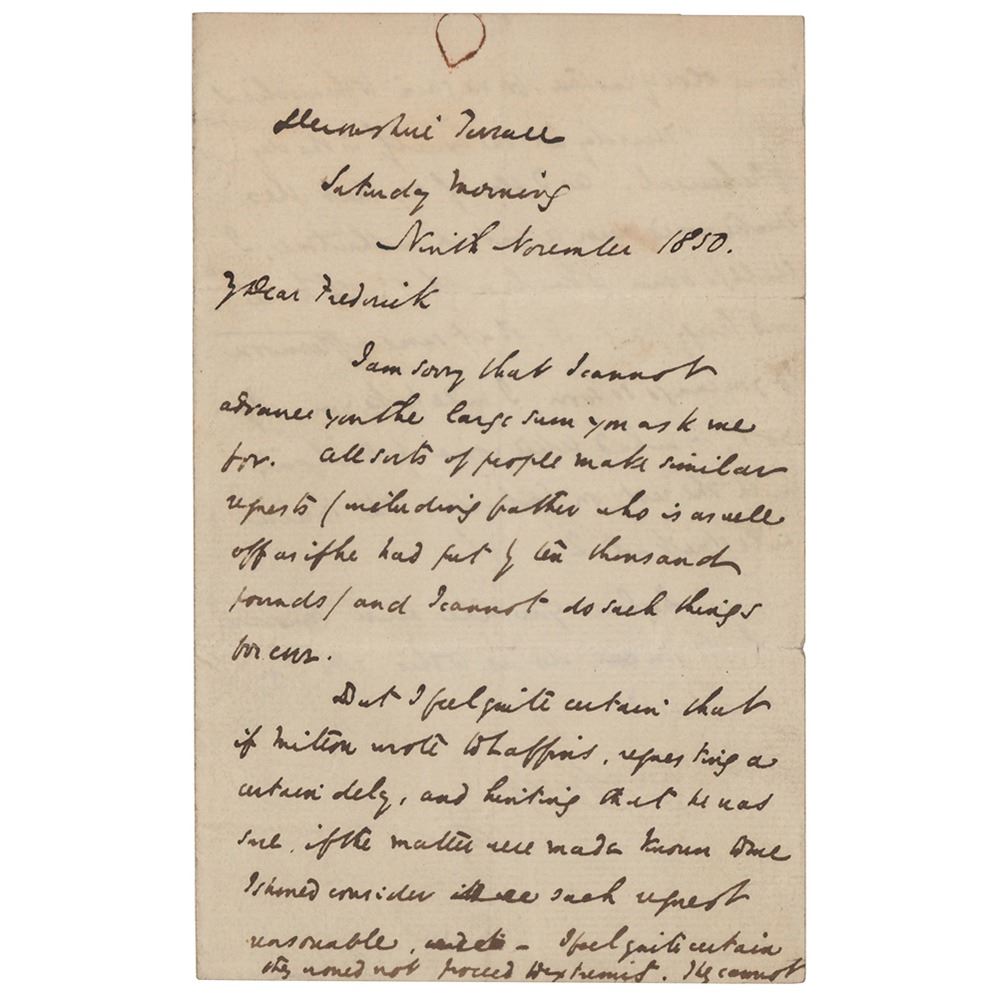 Devonshire Terrace
Saturday Morning
Ninth November 1850.
My Dear Frederick
I am sorry that I cannot
advance you the large sum you ask me
for. All sorts of people make similar
requests (including father who is as well
off as if he had put by ten thousand
pounds) and I cannot do such things
for ever.
But I feel quite certain that
if Mitton wrote to Laffins, requesting a
certain delay, and hinting that he was
sure, if the matter were made known to me
I should consider such request
reasonable, – I feel quite certain
they would not proceed to extremity. They cannot